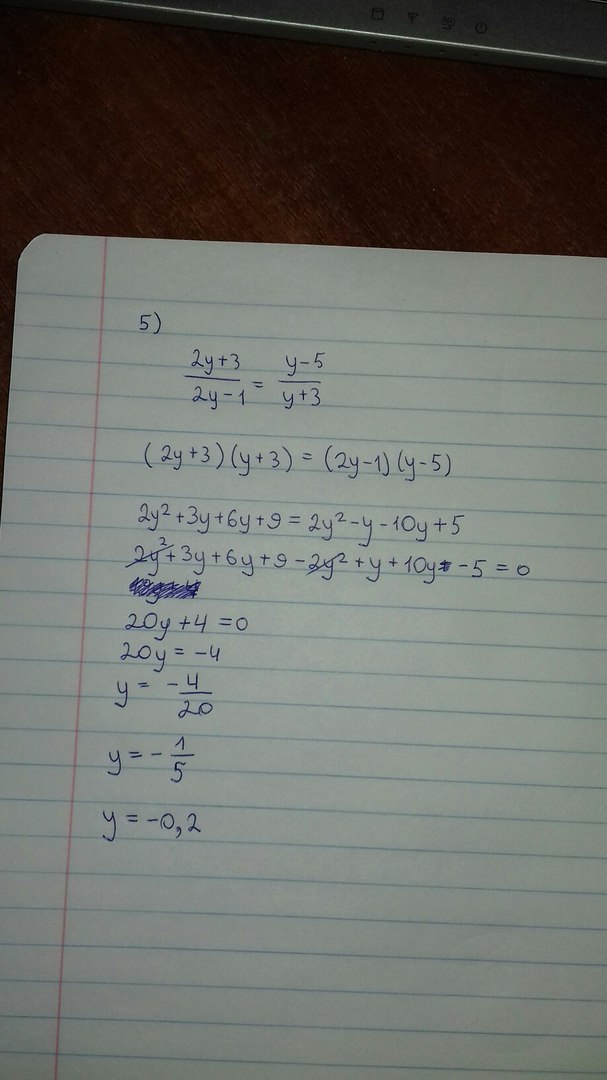 5)
(2y+3)/(2y-1) = (y-5)/(y+3)
(2y+3)(y+3) = (2y-1)(y-5)
2y²+3y+6y+9 = 2y²-y-10y+5
2y²+3y+6y+9-2y²+y+10y-5=0
20y+4=0
20y=-4
y = -4/20
y = -1/5
y = -0,2